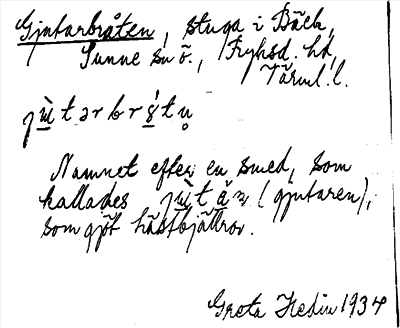 Gjutarbråten, stuga i Bäck,
Sunne sn ö., Fryksd. hd,
Värml. l.
jùtərbrǫ́tn̥
Namnet efter en smed, som
kallades (gjutaren),
som gjöt hästbjällror.
Greta Hedin 1934